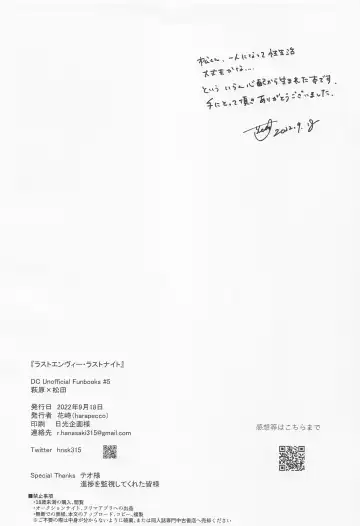 松くん、一人になって性生活
大丈夫かな…
という いらん心配から生まれた本です。
手にとって頂き ありがとうございました。
2022.9.18
『ラストエンヴィー・ラストナイト』
DC Unofficial Funbooks #5
萩原×松田
発行日 2022年9月18日
発行者 花崎(harapecco)
印刷 日光企画様
連絡先 r.hanasaki315@gmail.com
Twitter hnsk315
感想等はこちらまで
Special Thanks テオ様
進捗を監視してくれた皆様
■禁止事項
・18歳未満の購入、閲覧
・オークションサイト、フリマアプリへの出品
・無断での転載、本文のアップロード、コピー、複製
※ご不要の際は中身が分からないように破棄、または同人誌専門中古書店へ売却ください